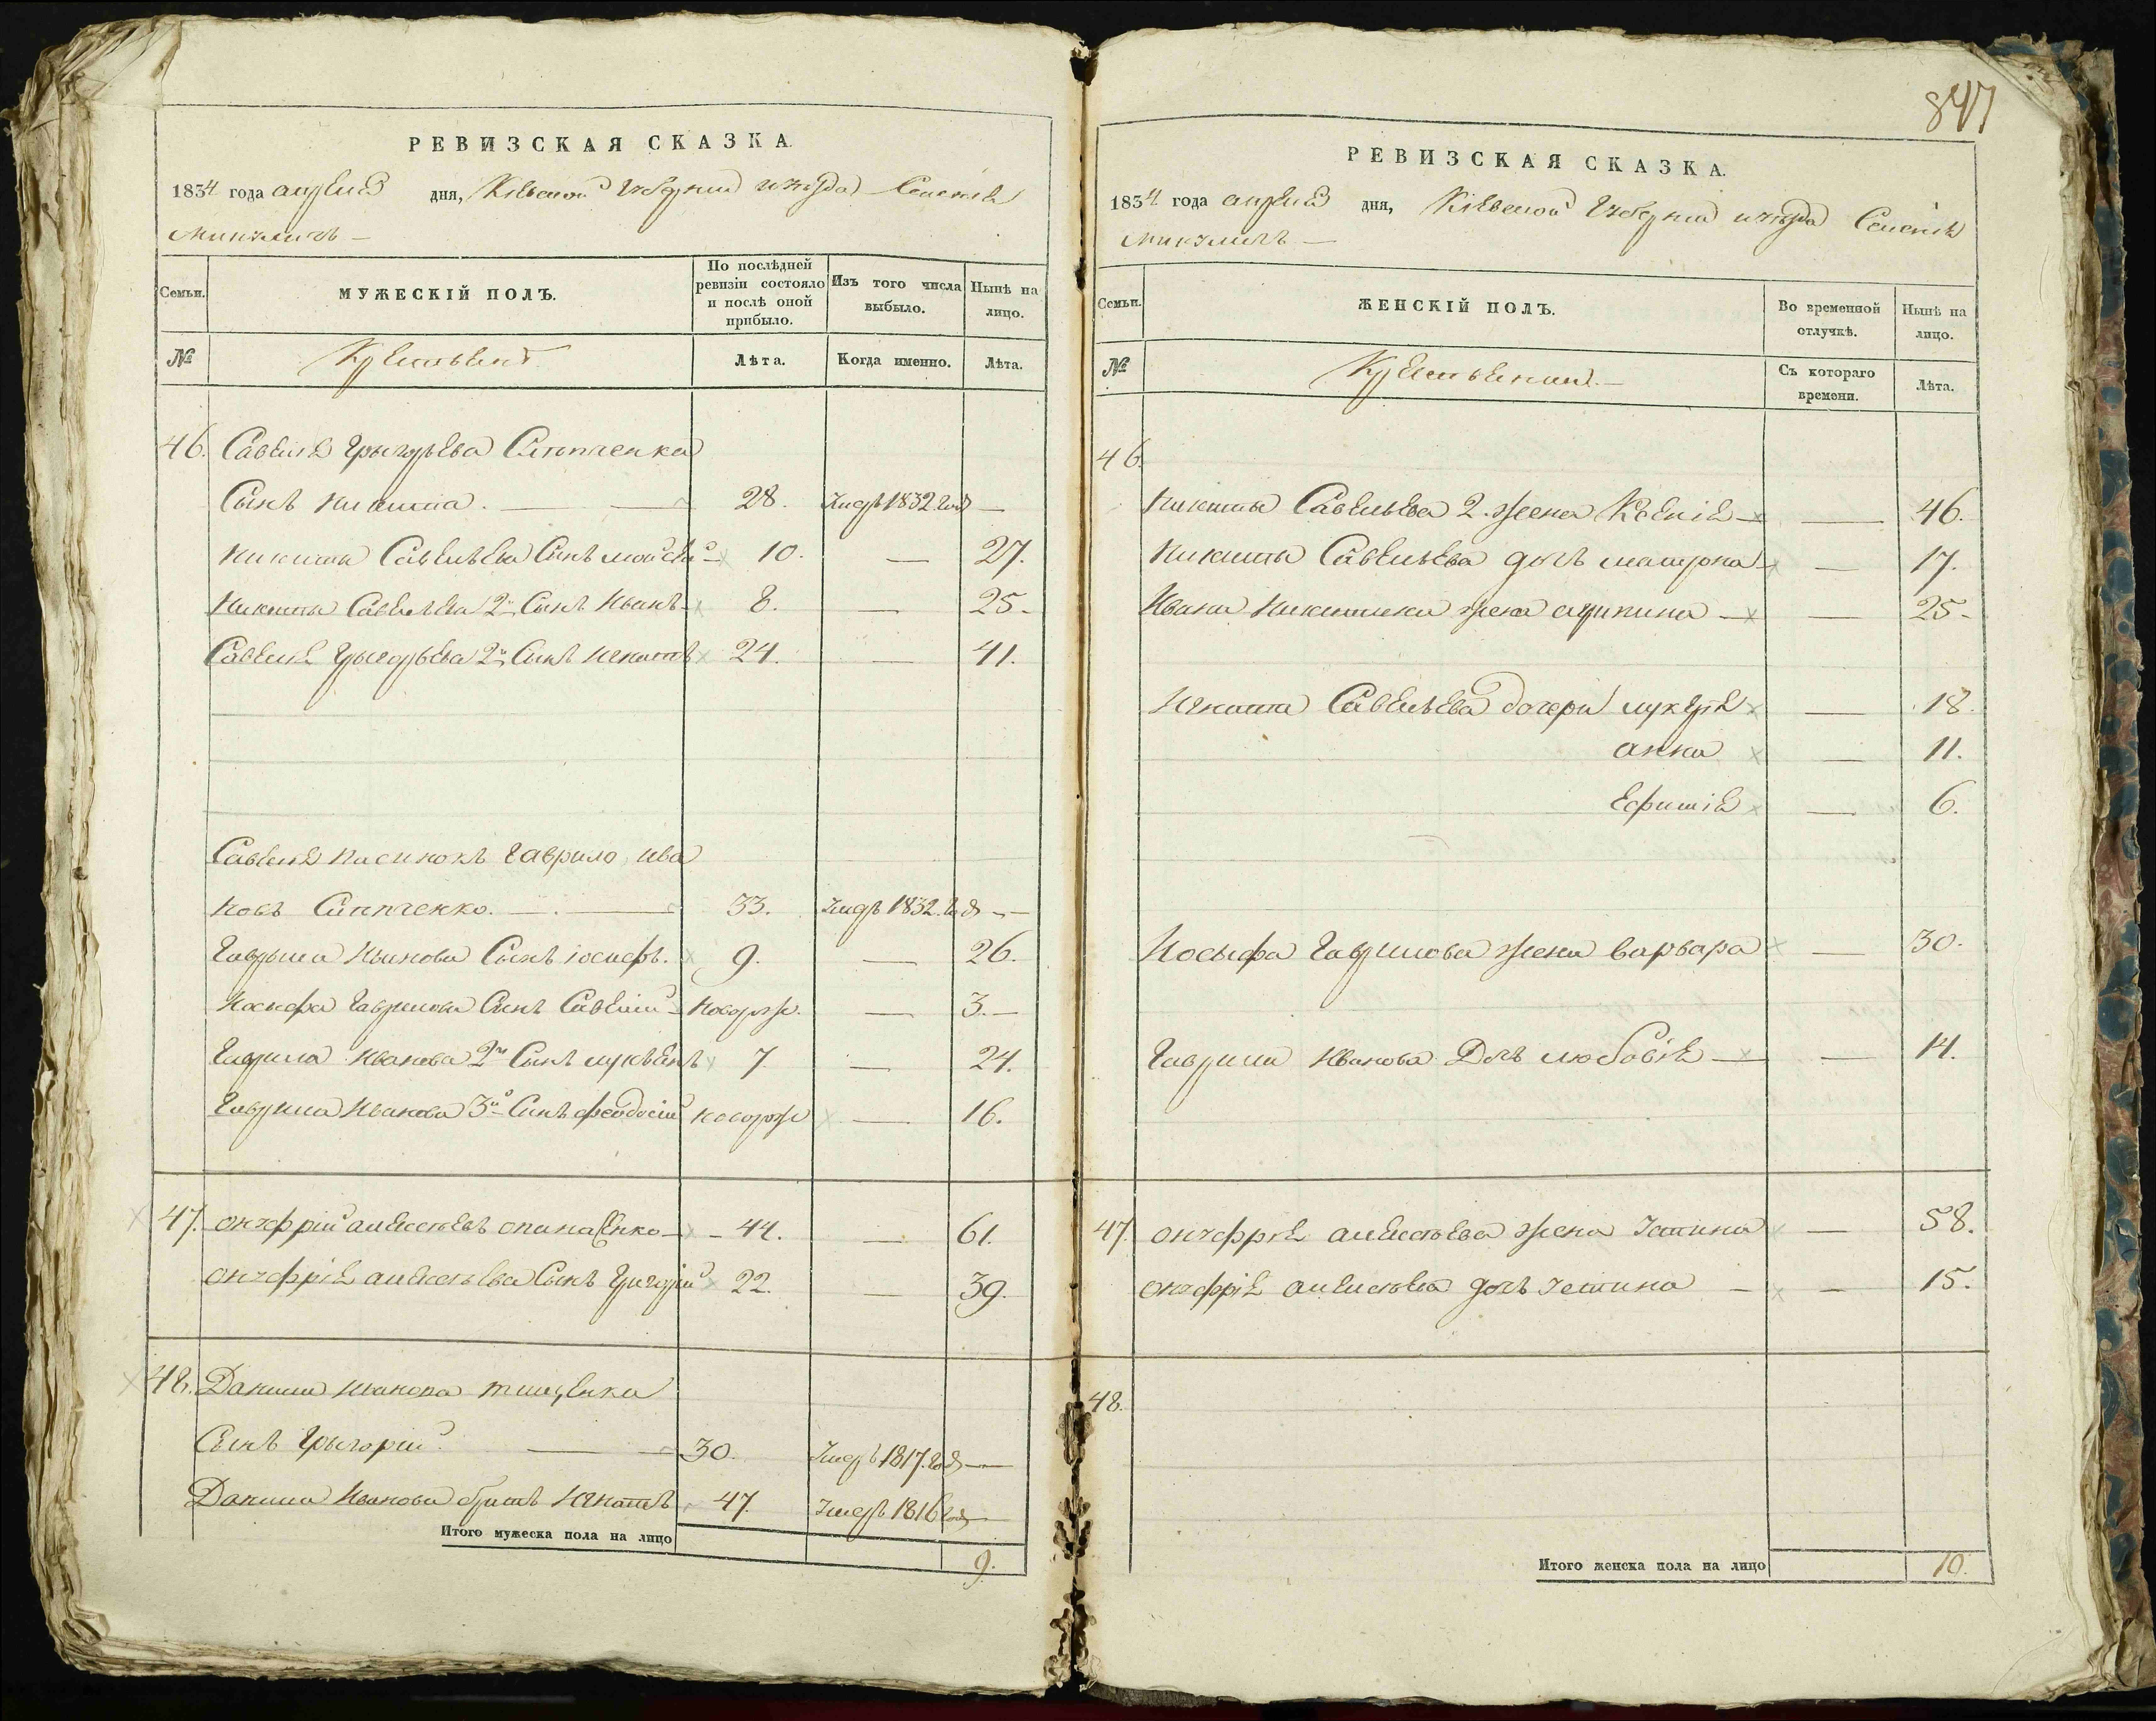 РЕВИЗСКАЯ СКАЗКА.
1834 года апреля дня, Кіевской Губерніи и уезда Селенія
Микуличъ —
Семьи.
МУЖЕСКІЙ ПОЛЪ.
По послѣдней ревизіи состояло и послѣ оной прибыло.
Изъ того числа выбыло.
Нынѣ на лицо.
№
Крестьенъ
Лѣта.
Когда именно.
Лѣта.
46. Савелія Грыгорьева
Сынъ Никита. — 28. Умеръ 1832. года —
Никиты Савельева Сынъ мойсей — 10. — 27.
Никиты Савельева 2й Сынъ Иванъ — 8. — 25.
Савелія Грыгорьева 2й Сынъ Игнатъ 24. — 41.
Савелія пасинокъ Гаврило Ива
новъ 33. Умеръ 1832. года —
Гаврыла Иванова Сынъ іосифъ. 9. — 26.
Иосыфа Гаврилова Сынъ Савелій новорож. — 3. —
Гаврила Иванова 2й Сынъ лукьянъ 7. — 24.
Гаврила Иванова 3й Сынъ феодосій новорож — 16.
47. онуфрій алексеевъ опанасенко — 44. — 61.
онуфрія алексеева Сынъ Григорій 22. — 39.
48. Данила Иванова тищенка
Сынъ Грыгорій. — 30. Умеръ 1817. года —
Данила Иванова братъ Игнатъ 47. Умеръ 1816 года
Итого мужеска пола на лицо
9.
847
РЕВИЗСКАЯ СКАЗКА.
1834 года апреля дня, Кіевской Губерніи и уезда Селенія
Микуличъ —
Семьи.
ЖЕНСКІЙ ПОЛЪ.
Во временной отлучкѣ.
Нынѣ на лицо.
№
Крестьенки. —
Съ котораго времени.
Лѣта.
46.
Никиты Савельева 2. жена Ксенія — — 46.
Никиты Савельева дочь матрона — — 17.
Ивана Никитина жена агрипина — — 25.
Игната Савельева дочери лукерія — 18.
анна — 11.
Ефимія — 6.
Иосыфа Гаврилова жена варвара — 30.
Гаврила Иванова Дочь любовія — — 14.
47. онуфрія алексеева жена Устина — 58.
онуфрія алексеева дочь устина — — 15.
48.
Итого женска пола на лицо
10.